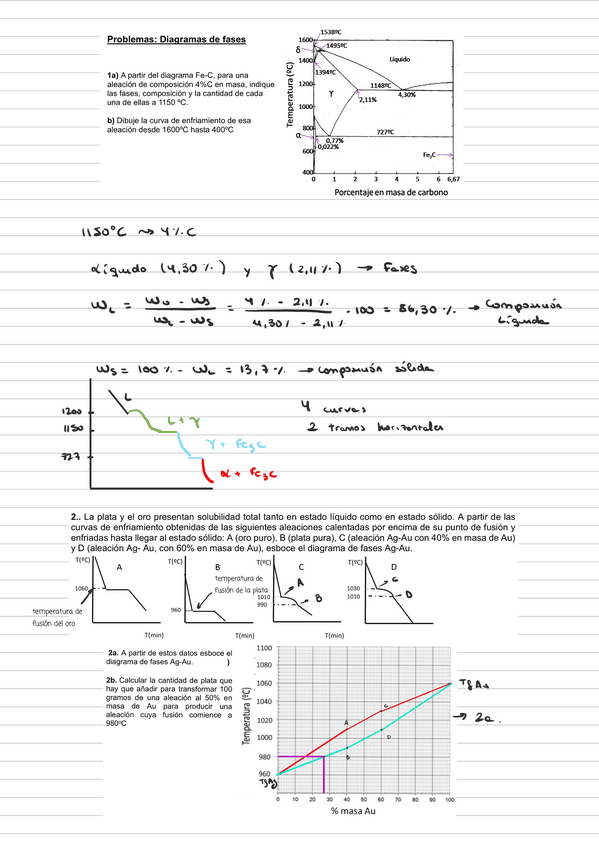 Problemas: Diagramas de fases
1a) A partir del diagrama Fe-C, para una
aleación de composición 4%C en masa, indique
las fases, composición y la cantidad de cada
una de ellas a 1150 ºC.
b) Dibuje la curva de enfriamiento de esa
aleación desde 1600ºC hasta 400ºC
Temperatura (ºC)
1600
1400
1200
1000
800
600
400
1538ºC
1495ºC
δ
1394ºC
Líquido
γ
1148ºC
2,11%
4,30%
α
727ºC
0,77%
0,022%
Fe₃C
0 1 2 3 4 5 6 6,67
Porcentaje en masa de carbono
1150°C ⇝ 4% C
Líquido (4,30 %) y γ (2,11 %) → Fases
W_L = (W_0 - W_S) / (W_L - W_S) = (4 % - 2,11 %) / (4,30% - 2,11 %) · 100 = 86,30 % → Composición
Líquida
W_S = 100 % - W_L = 13,7 % → composición sólida
1200
1150
727
L
L + γ
γ + Fe₃C
α + Fe₃C
4 curvas
2 tramos horizontales
2.. La plata y el oro presentan solubilidad total tanto en estado líquido como en estado sólido. A partir de las
curvas de enfriamiento obtenidas de las siguientes aleaciones calentadas por encima de su punto de fusión y
enfriadas hasta llegar al estado sólido: A (oro puro), B (plata pura), C (aleación Ag-Au con 40% en masa de Au)
y D (aleación Ag- Au, con 60% en masa de Au), esboce el diagrama de fases Ag-Au.
T(ºC)
A
1060
temperatura de
fusión del oro
T(min)
T(ºC)
B
temperatura de
fusión de la plata
960
T(min)
T(ºC)
C
A
1010
990
B
T(min)
T(ºC)
D
C
1030
1010
D
2a. A partir de estos datos esboce el
diagrama de fases Ag-Au. )
2b. Calcular la cantidad de plata que
hay que añadir para transformar 100
gramos de una aleación al 50% en
masa de Au para producir una
aleación cuya fusión comience a
980ºC
Temperatura (ºC)
1100
1080
1060
1040
1020
1000
980
960
Tf Ag
A
C
B
D
Tf Au
→ 2a.
0 10 20 30 40 50 60 70 80 90 100
% masa Au